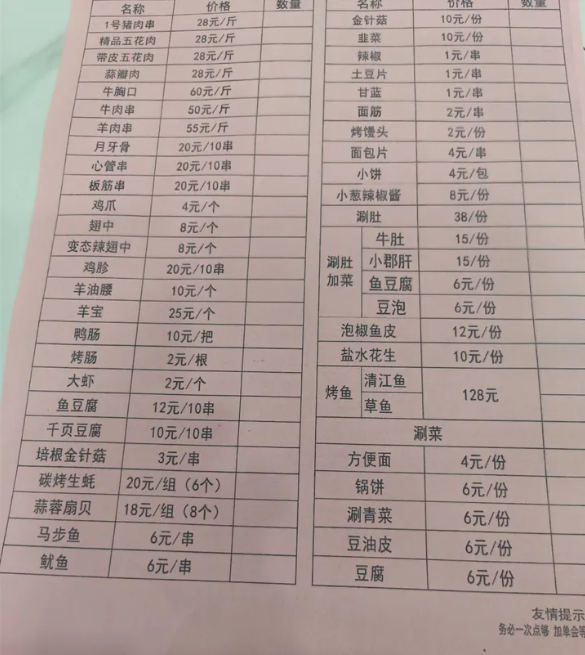 名称 价格 数量
1号猪肉串 28元/斤
精品五花肉 28元/斤
带皮五花肉 28元/斤
蒜瓣肉 28元/斤
牛胸口 60元/斤
牛肉串 50元/斤
羊肉串 55元/斤
月牙骨 20元/10串
心管串 20元/10串
板筋串 20元/10串
鸡爪 4元/个
翅中 8元/个
变态辣翅中 8元/个
鸡胗 20元/10串
羊油腰 10元/个
羊宝 25元/个
鸭肠 10元/把
烤肠 2元/根
大虾 2元/个
鱼豆腐 12元/10串
千页豆腐 10元/10串
培根金针菇 3元/串
碳烤生蚝 20元/组（6个）
蒜蓉扇贝 18元/组（8个）
马步鱼 6元/串
鱿鱼 6元/串
名称 价格 数量
金针菇 10元/份
韭菜 10元/份
辣椒 1元/串
土豆片 1元/串
甘蓝 1元/串
面筋 2元/串
烤馒头 2元/份
面包片 4元/串
小饼 4元/包
小葱辣椒酱 8元/份
涮肚 38/份
涮肚加菜
牛肚 15/份
小郡肝 15/份
鱼豆腐 6元/份
豆泡 6元/份
泡椒鱼皮 12元/份
盐水花生 10元/份
烤鱼 清江鱼 128元
草鱼
涮菜
方便面 4元/份
锅饼 6元/份
涮青菜 6元/份
豆油皮 6元/份
豆腐 6元/份
友情提示
务必一次点够 加单会等